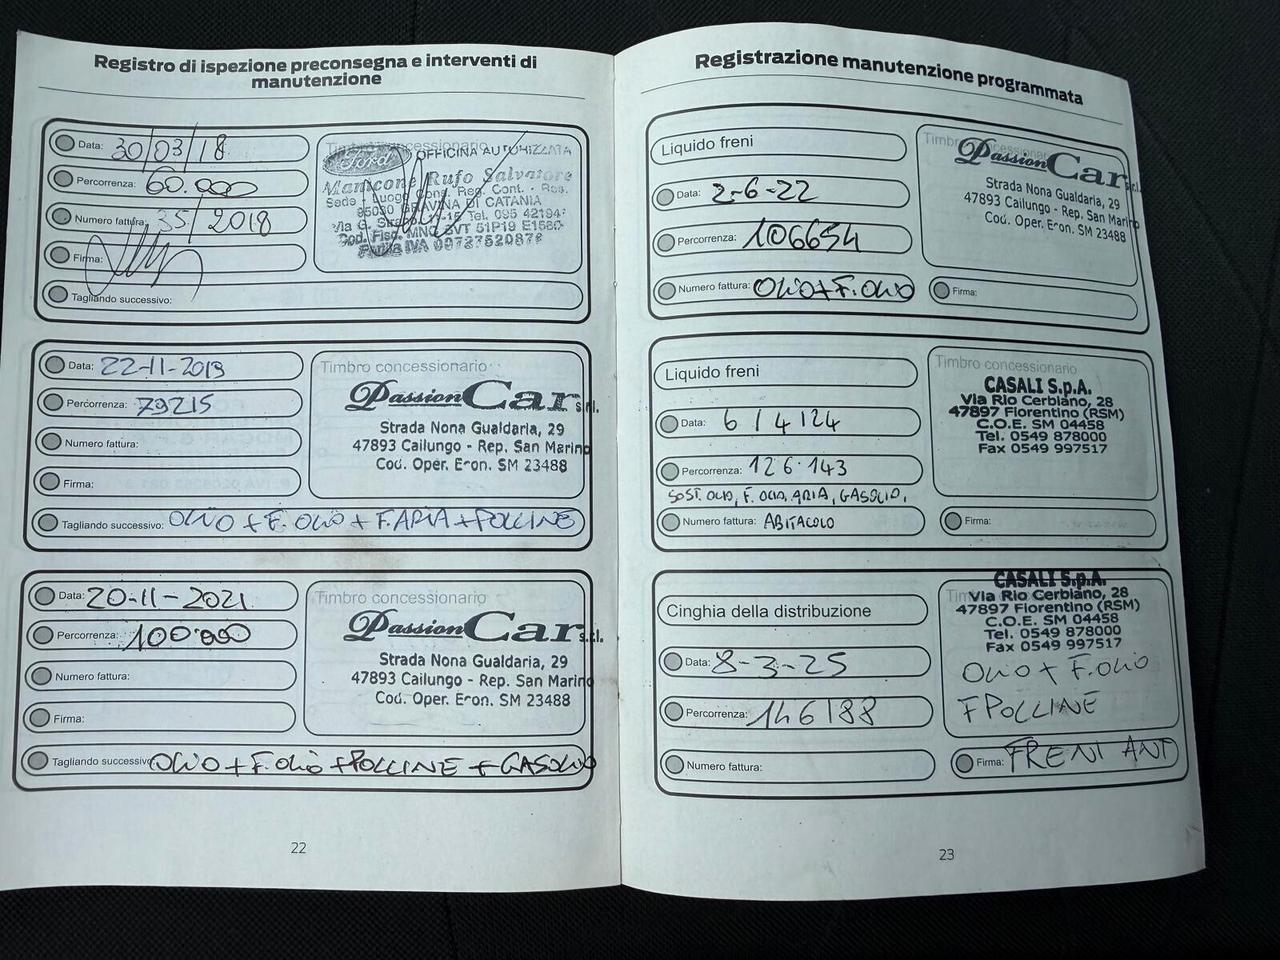 Registro di ispezione preconsegna e interventi di
manutenzione
Data: 30/03/18
Percorrenza: 60.000
Numero fattura: 35/2018
Firma:
Tagliando successivo:
Timbro concessionario
Ford OFFICINA AUTORIZZATA
Manticone Rufo Salvatore
95030 GRAVINA DI CATANIA
Data: 22-11-2019
Percorrenza: 79215
Numero fattura:
Firma:
Tagliando successivo: OLIO + F. OLIO + F. ARIA + POLLINE
Timbro concessionario
PassionCar s.r.l.
Strada Nona Gualdaria, 29
47893 Cailungo - Rep. San Marino
Cod. Oper. Econ. SM 23488
Data: 20-11-2021
Percorrenza: 100.000
Numero fattura:
Firma:
Tagliando successivo OLIO + F. OLIO + POLLINE + GASOLIO
Timbro concessionario
PassionCar s.r.l.
Strada Nona Gualdaria, 29
47893 Cailungo - Rep. San Marino
Cod. Oper. Econ. SM 23488
22
Registrazione manutenzione programmata
Liquido freni
Data: 2-6-22
Percorrenza: 106654
Numero fattura: OLIO + F. OLIO
Timbro concessionario
PassionCar s.r.l.
Strada Nona Gualdaria, 29
47893 Cailungo - Rep. San Marino
Cod. Oper. Econ. SM 23488
Firma:
Liquido freni
Data: 6/4/24
Percorrenza: 126.143
SOST. OLIO, F. OLIO, ARIA, GASOLIO,
Numero fattura: ABITACOLO
Timbro concessionario
CASALI S.p.A.
Via Rio Cerbiano, 28
47897 Fiorentino (RSM)
C.O.E. SM 04458
Tel. 0549 878000
Fax 0549 997517
Firma:
Cinghia della distribuzione
Data: 8-3-25
Percorrenza: 146188
Numero fattura:
CASALI S.p.A.
Via Rio Cerbiano, 28
47897 Fiorentino (RSM)
C.O.E. SM 04458
Tel. 0549 878000
Fax 0549 997517
OLIO + F. OLIO
F POLLINE
Firma: FRENI ANT
23